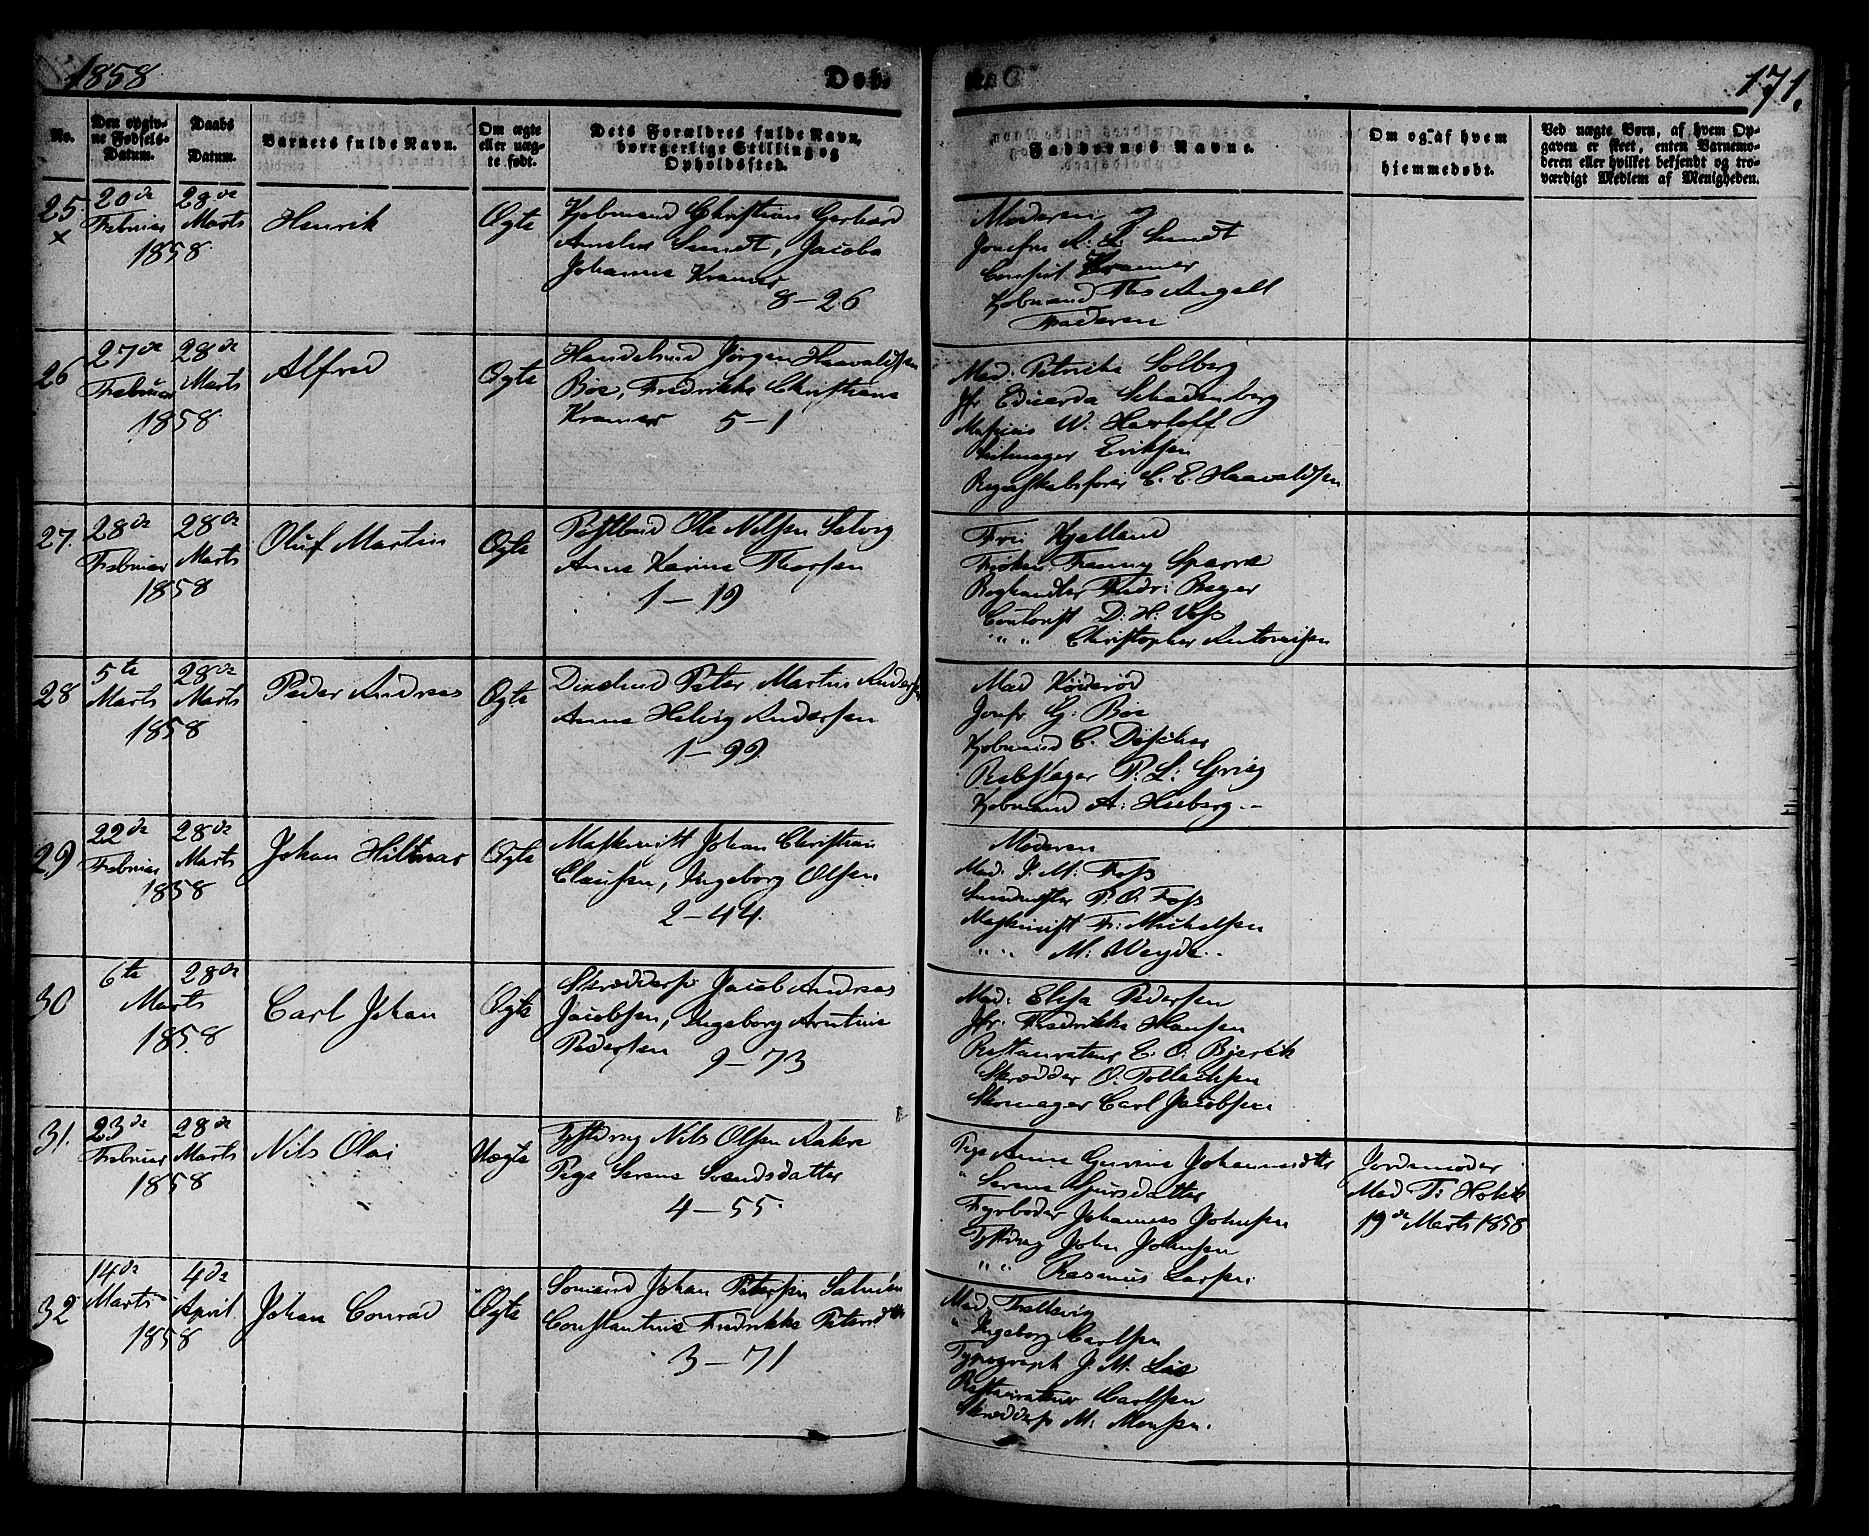 1858
Døb
171.
No.
Den opgiv-
ne Fødsels-
Datum.
Daabs
Datum.
Barnets fulde Navn.
Om ægte
eller uæg-
te født.
Dets Forældres fulde Navn,
borgerlige Stilling og
Opholdssted.
Faddernes Navne.
Om og af hvem
hjemmedøbt.
Ved uægte Børn, af hvem Op-
gaven er skeet, enten Barnemo-
deren eller hvilket bekjendt og tro-
værdigt Medlem af Menigheden.
25
×
20de
Februar
1858
28de
Marts
Henrik
Ægte
Kjøbmand Christian Gerhard
Sundt, Jacoba
Johanna Kramer
8-26
Moderen og
Jomfru A: L: Sundt
Consul Kramer
Kjøbmand Ths Angell
Faderen
26
27de
Februar
1858
28de
Marts
Alfred
Ægte
Handelsmd Jørgen Haavaldsen
Bøe, Fredrikke Christiane
Kramer 5-1
Mad. Petricke Solberg
Jfr Eduarda Schadenberg
W. Hartoff
Eriksen
Regnskabsfører C. E. Haavaldsen
27.
28de
Februar
1858
28de
Marts
Oluf Martin
Ægte
Postbud Ole Nilssen Salvig
Anne Karine Thorsen
1-19
Fru Kjelland
Frøken Fanny Sparre
Boghandler Fredr: Beyer
Contorist D: H: Voss
" " Christopher Antonisen
28
5te
Marts
1858
28de
Marts
Peder Andreas
Ægte
Peter Martin Anders
Anne Helvig Andersen
1-99.
Mad
Jomfr G: Bøe
Kjøbmand C. Döscher
Rebslager P. L: Grieg
Kjøbmand A: Heiberg.-
29
22de
Februar
1858
28de
Marts
Johan Hiltmar
Ægte
Maskinist Johan Christian
Clausen, Ingeborg Olsen
2-44.
Moderen
Mad. J. M: Foss
P. O. Foss
Maskinist Fr: Michelsen
" " M: Weyde.
30
6te
28de
Marts
1858
Carl Johan
Ægte
Skrædders Jacob Andreas
Jacobsen, Ingeborg
Pedersen 9-73
Mad. Elisa Pedersen
Jfr. Fredrikke Hansen
Restaurateur E. O. Bjerck
Skrædder O. Tollachsen
Skomager Carl Jacobsen
31.
23de
Februar
1858
28de
Marts
Nils Olai
Uægte
Nils Olsen Aakre
Pige Serene Svendsdatter
4-55.
Pige Anne Gurine Johannesdtr
" Serene Guusdatter
Fyrbøder Johannes Johnsen
John Johnsen
" " Rasmus Larsen.
Jordemoder
Mad T: Holck
19de Marts 1858
32
14de
Marts
1858
4de
April
Johan Conrad
Ægte
Sømand Johan Petersen
Constantine Fredrikke Petersdtr
3-71
Mad.
" Ingeborg Carlsen
Typograph J. M. Lie
Restaurateur Carlsen
Skrædders M. Monsen.